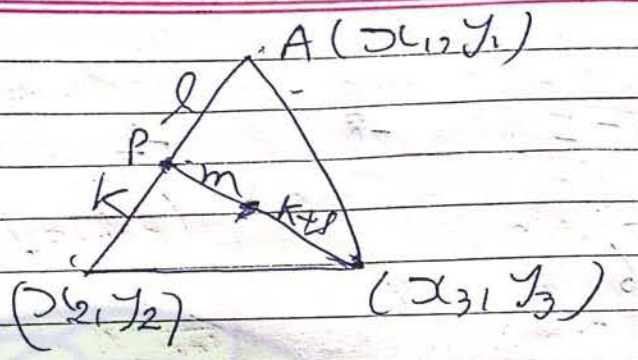 A (x1, y1)
l
P
m
K
K+l
(x2, y2)
(x3, y3)